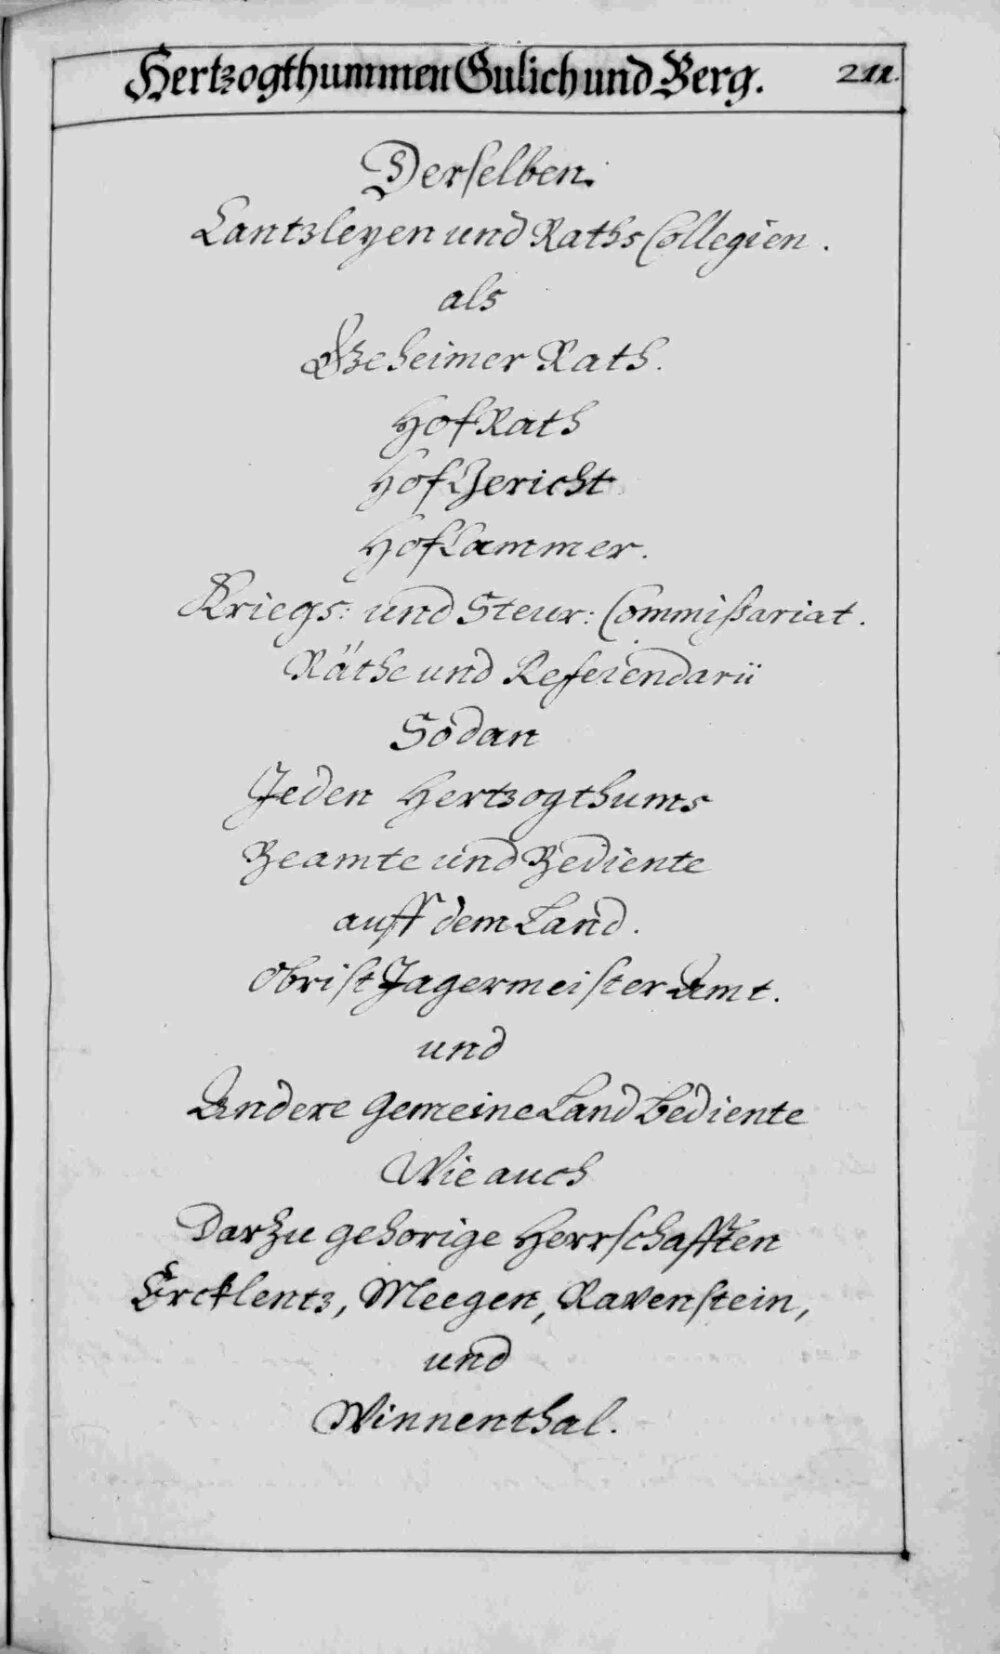 Hertzogthummen Gulich und Berg. 211.
Derselben.
Cantzleyen und Raths Collegien.
als
Geheimer Rath.
Hof Rath
Hof Gericht
Hof Cammer.
Kriegs: und Steur: Commißariat.
Räthe und Referendarii
Sodan
Jeden Hertzogthums
Beamte und Bediente
auff dem Land.
Obrist Jagermeister Amt.
und
Andere gemeine Land bediente
Wie auch
Darzu gehorige Herrschafften
Ercklentz, Meegen, Ravenstein,
und
Winnenthal.